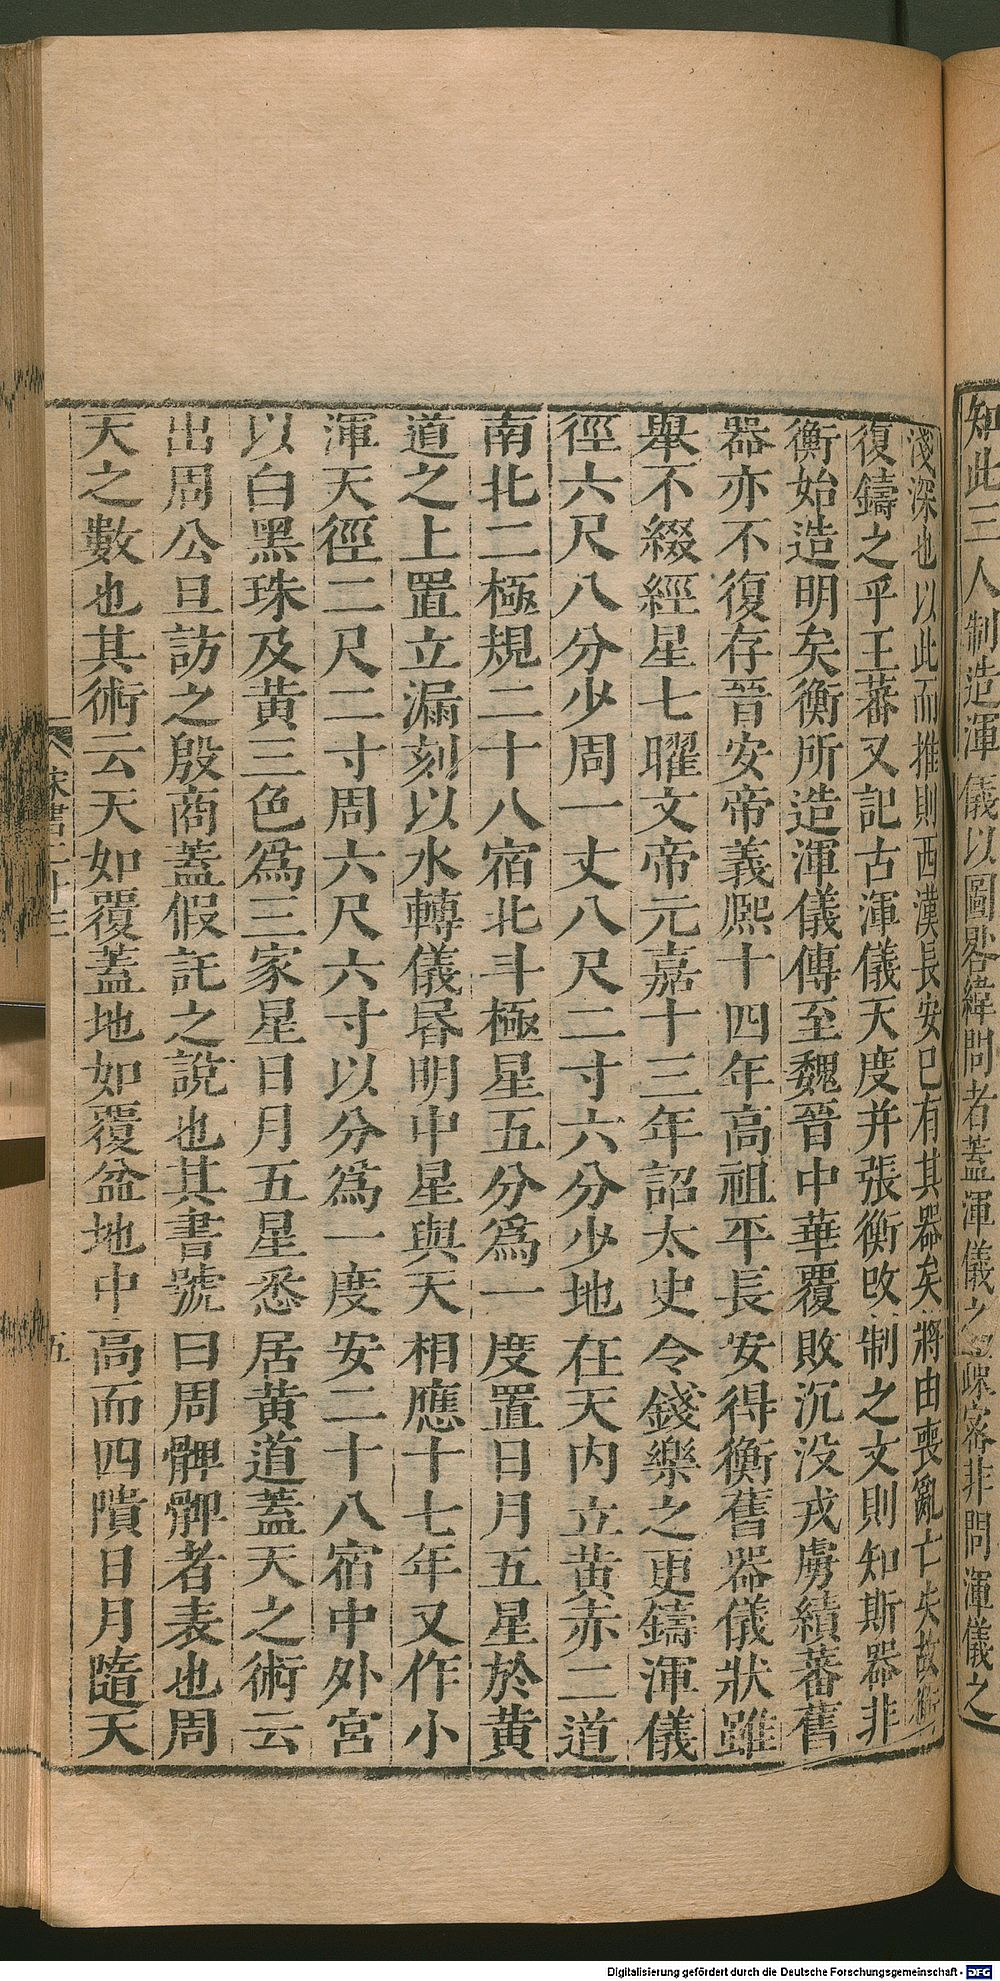 知此三人制造渾儀以圖晷緯問者蓋渾儀之疎密非問渾儀之
淺深也以此而推則西漢長安已有其器矣將由喪亂亡失故衡
復鑄之乎王蕃又記古渾儀天度并張衡改制之文則知斯器非
衡始造明矣衡所造渾儀傳至魏晉中華覆敗沉没戎虜績蕃舊
器亦不復存晉安帝義熙十四年高祖平長安得衡舊器儀狀雖
舉不綴經星七曜文帝元嘉十三年詔太史令錢樂之更鑄渾儀
徑六尺八分少周一丈八尺二寸六分少地在天内立黄赤二道
南北二極規二十八宿北斗極星五分爲一度置日月五星於黄
道之上置立漏刻以水轉儀昬明中星與天相應十七年又作小
渾天徑二尺二寸周六尺六寸以分爲一度安二十八宿中外宫
以白黑珠及黄三色爲三家星日月五星悉居黄道蓋天之術云
出周公旦訪之殷商蓋假託之說也其書號曰周髀髀者表也周
天之數也其術云天如覆蓋地如覆盆地中高而四隤日月隨天
宋書二十三
五
Digitalisierung gefördert durch die Deutsche Forschungsgemeinschaft - DFG